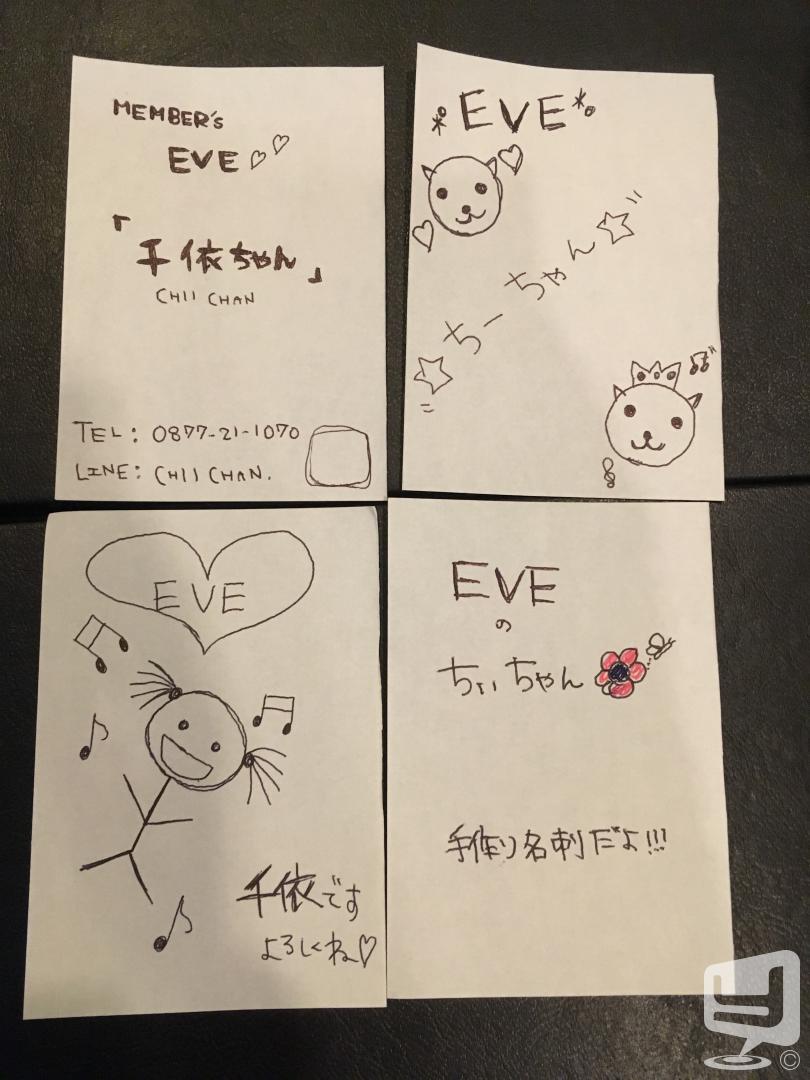 MEMBER's
EVE♡♡
「千依ちゃん」
CHII CHAN
TEL: 0877-21-1070
LINE: CHII CHAN.
*EVE*
☆ちーちゃん☆
EVE
千依です
よろしくね♡
EVE
の
ちぃちゃん
手作り名刺だよ!!!